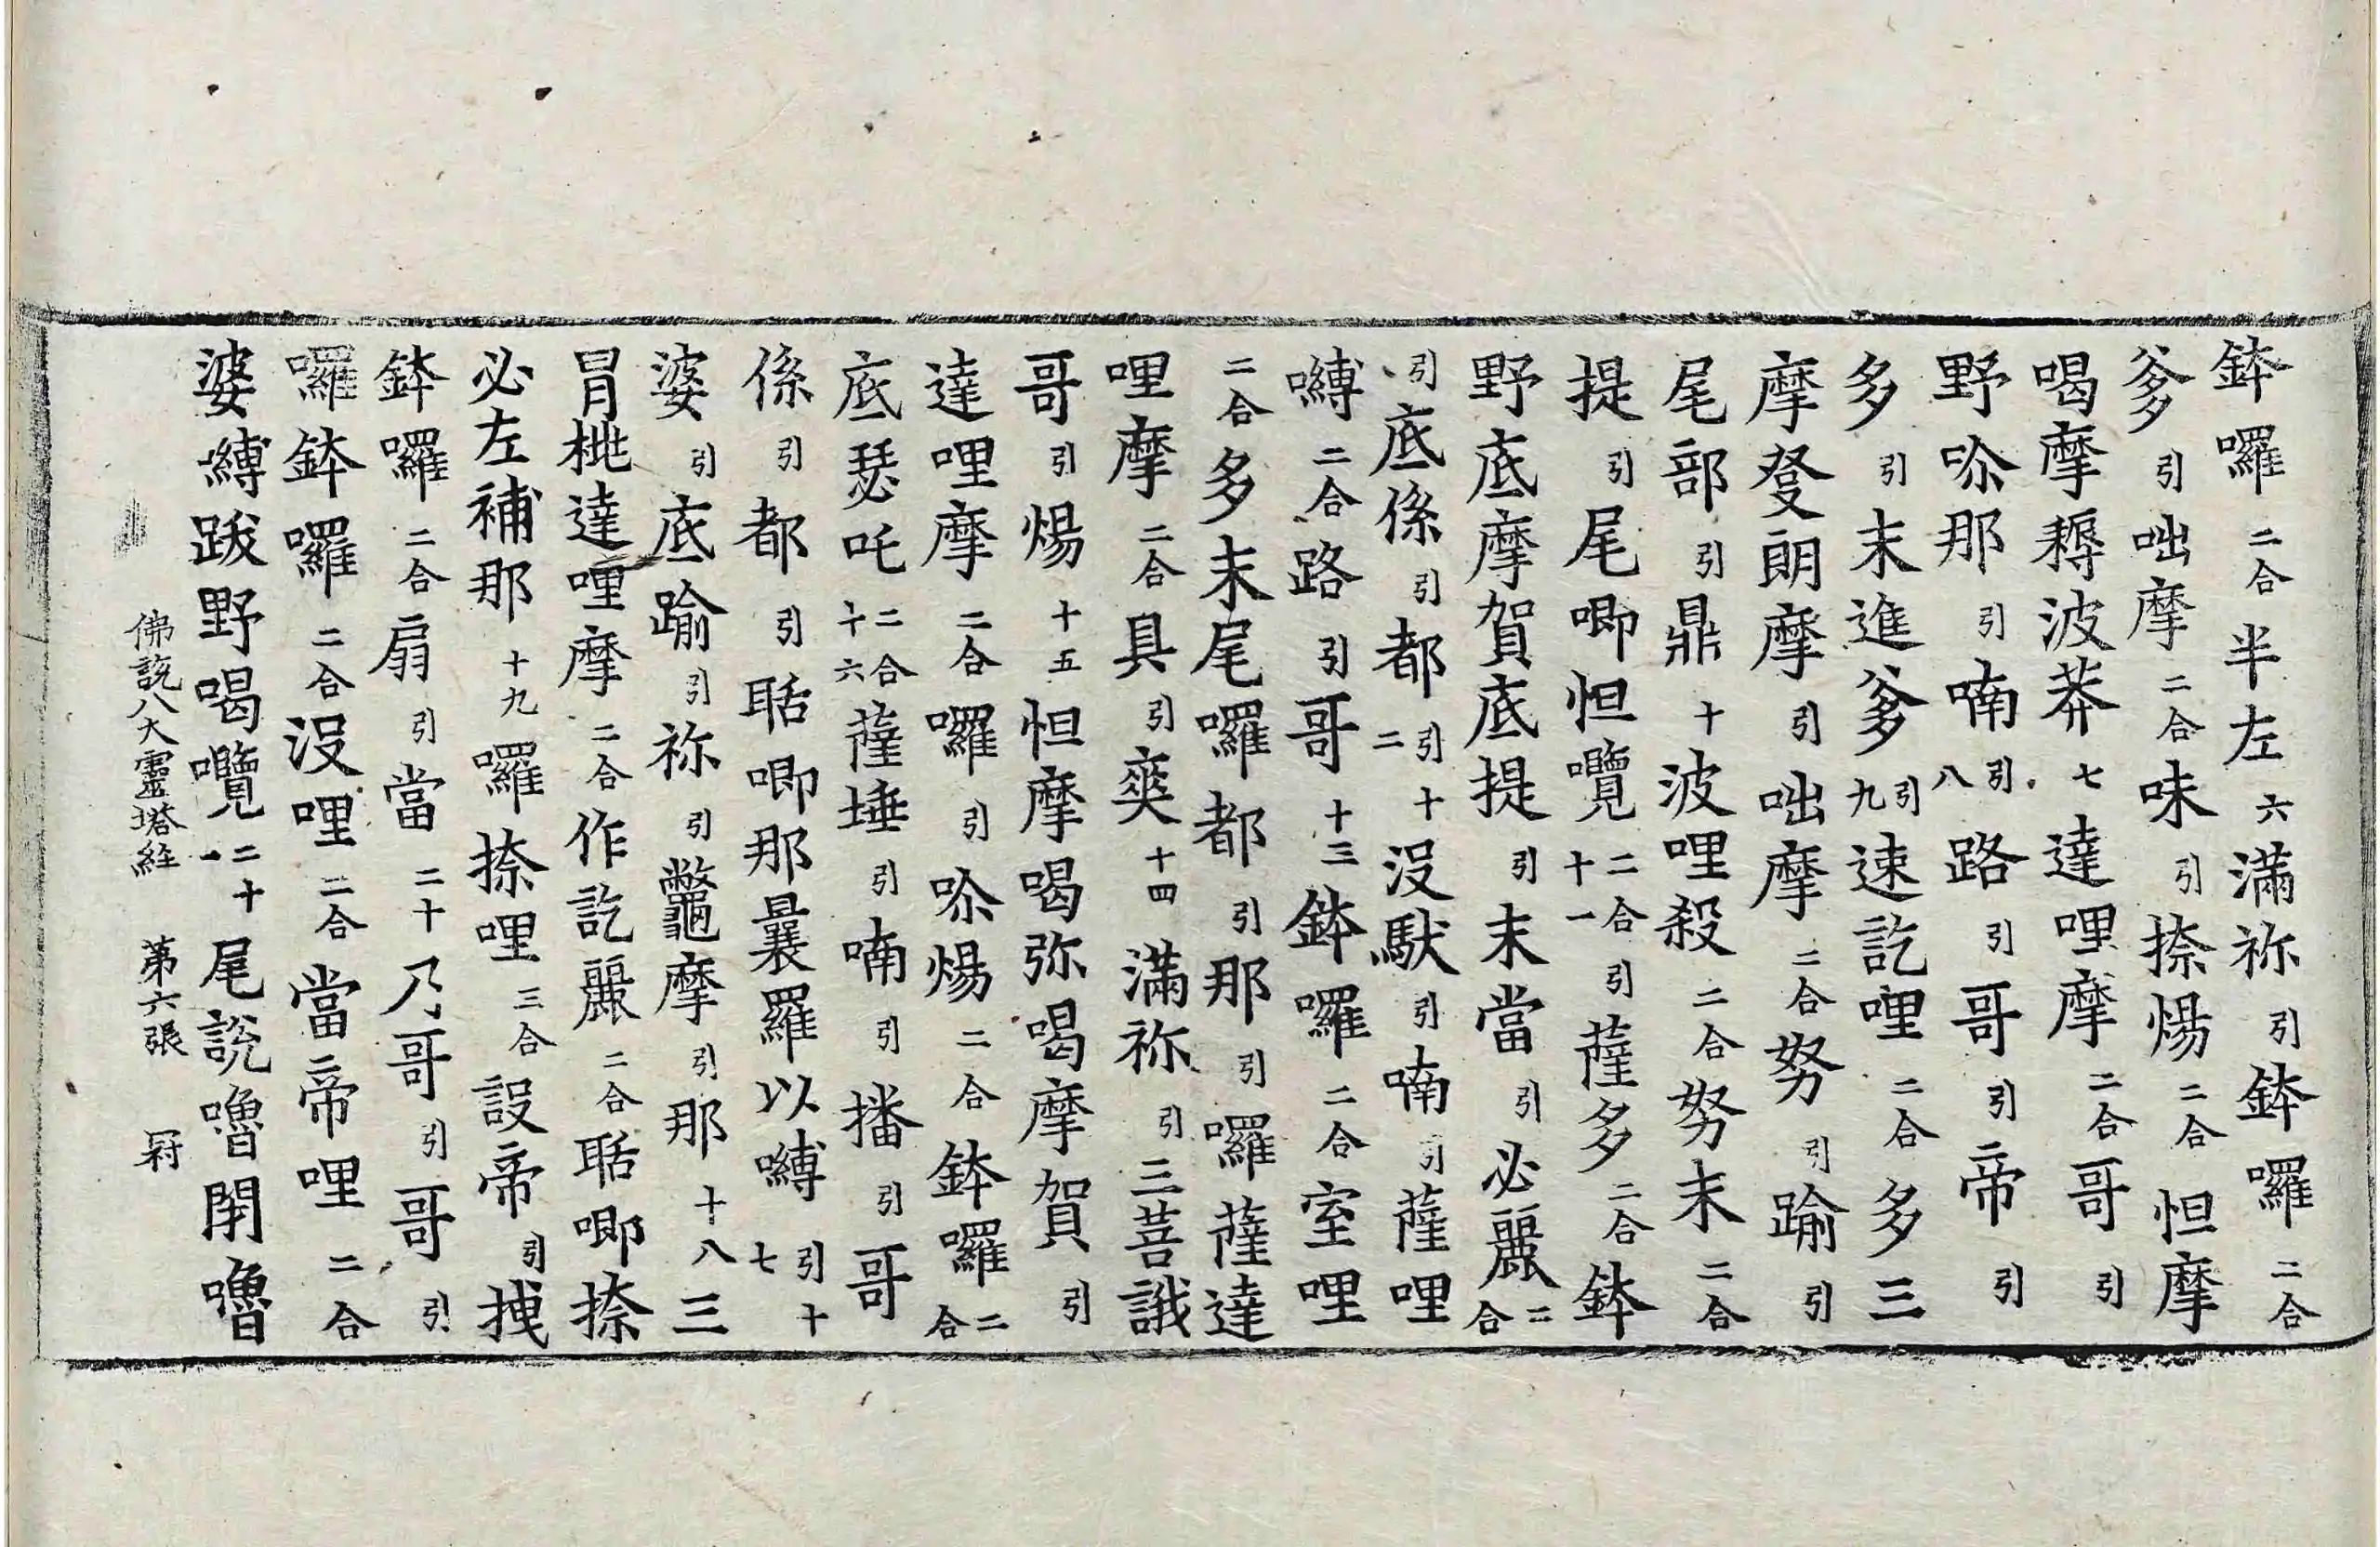 鉢囉二合半左六滿祢引鉢囉二合
爹引咄摩二合味引捺煬二合怛摩
喝摩耨波莽七達哩摩二合哥引
野吩那引喃引八路引哥引帝引
多引末進爹引九速訖哩二合多三
摩發朗摩引咄摩二合努引踰引
尾部引鼎十波哩殺二合努末二合
提引尾唧怛囕二合十一引薩多二合鉢
野底摩賀底提引末當引必麗二合
引底係引都引十二沒馱引喃引薩哩
嚩二合路引哥十三鉢囉二合室哩
二合多末尾囉都引那引囉薩達
哩摩二合具引奭十四滿祢引三菩誐
哥引煬十五怛摩喝弥喝摩賀引
達哩摩二合囉引吩煬二合鉢囉二合
底瑟吒二合十六薩埵引喃引播引哥
係引都引聒唧那曩羅以嚩引十七
婆引底踰引祢引鼈摩引那十八三
冐桃達哩摩二合作訖麗二合聒唧捺
必左補那十九囉捺哩三合設帝引拽
鉢囉二合扇引當二十乃哥引哥引
囉鉢囉二合沒哩二合當帝哩二合
婆嚩跋野喝囕二十一尾說嚕閉嚕
佛說八大靈塔経　第六張　冠